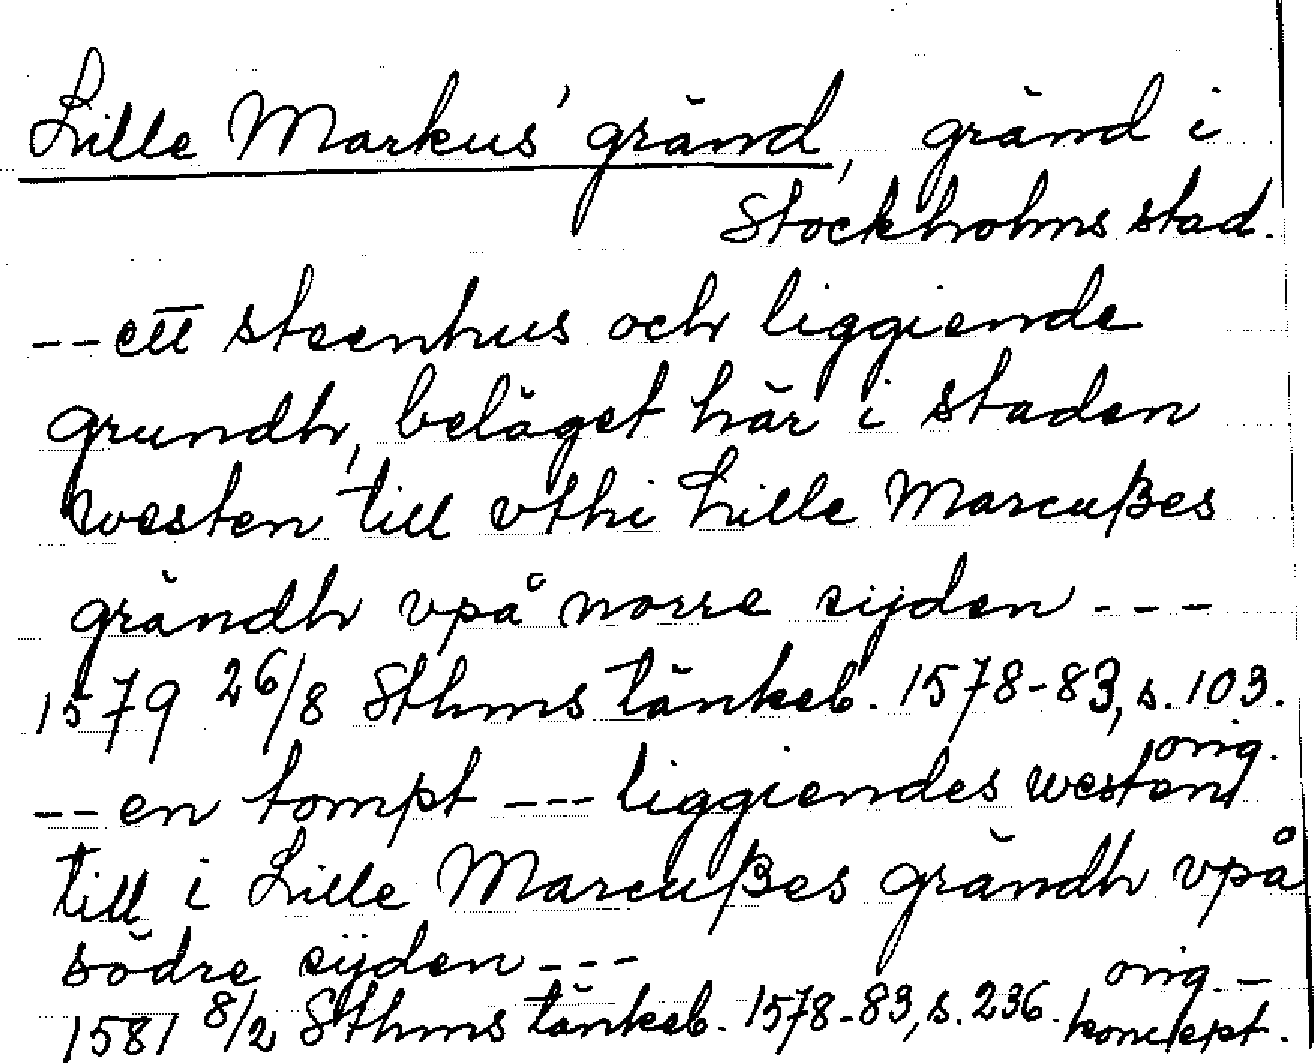 Lille Markus' gränd, gränd i
Stockholms stad.
--ett steenhus och liggiende
grundh, beläget här i staden
westen till vthi Lille Marcußes
grändh vpå norre sijden ---
1579 26/8 Sthms tänkeb. 1578-83, s. 103.
orig.
--en tompt --- liggiendes westen
till i Lille Marcußes grändh vpå
södre sijden ---
orig. -
1581 8/2 Sthms tänkeb. 1578-83, s. 236. koncept.